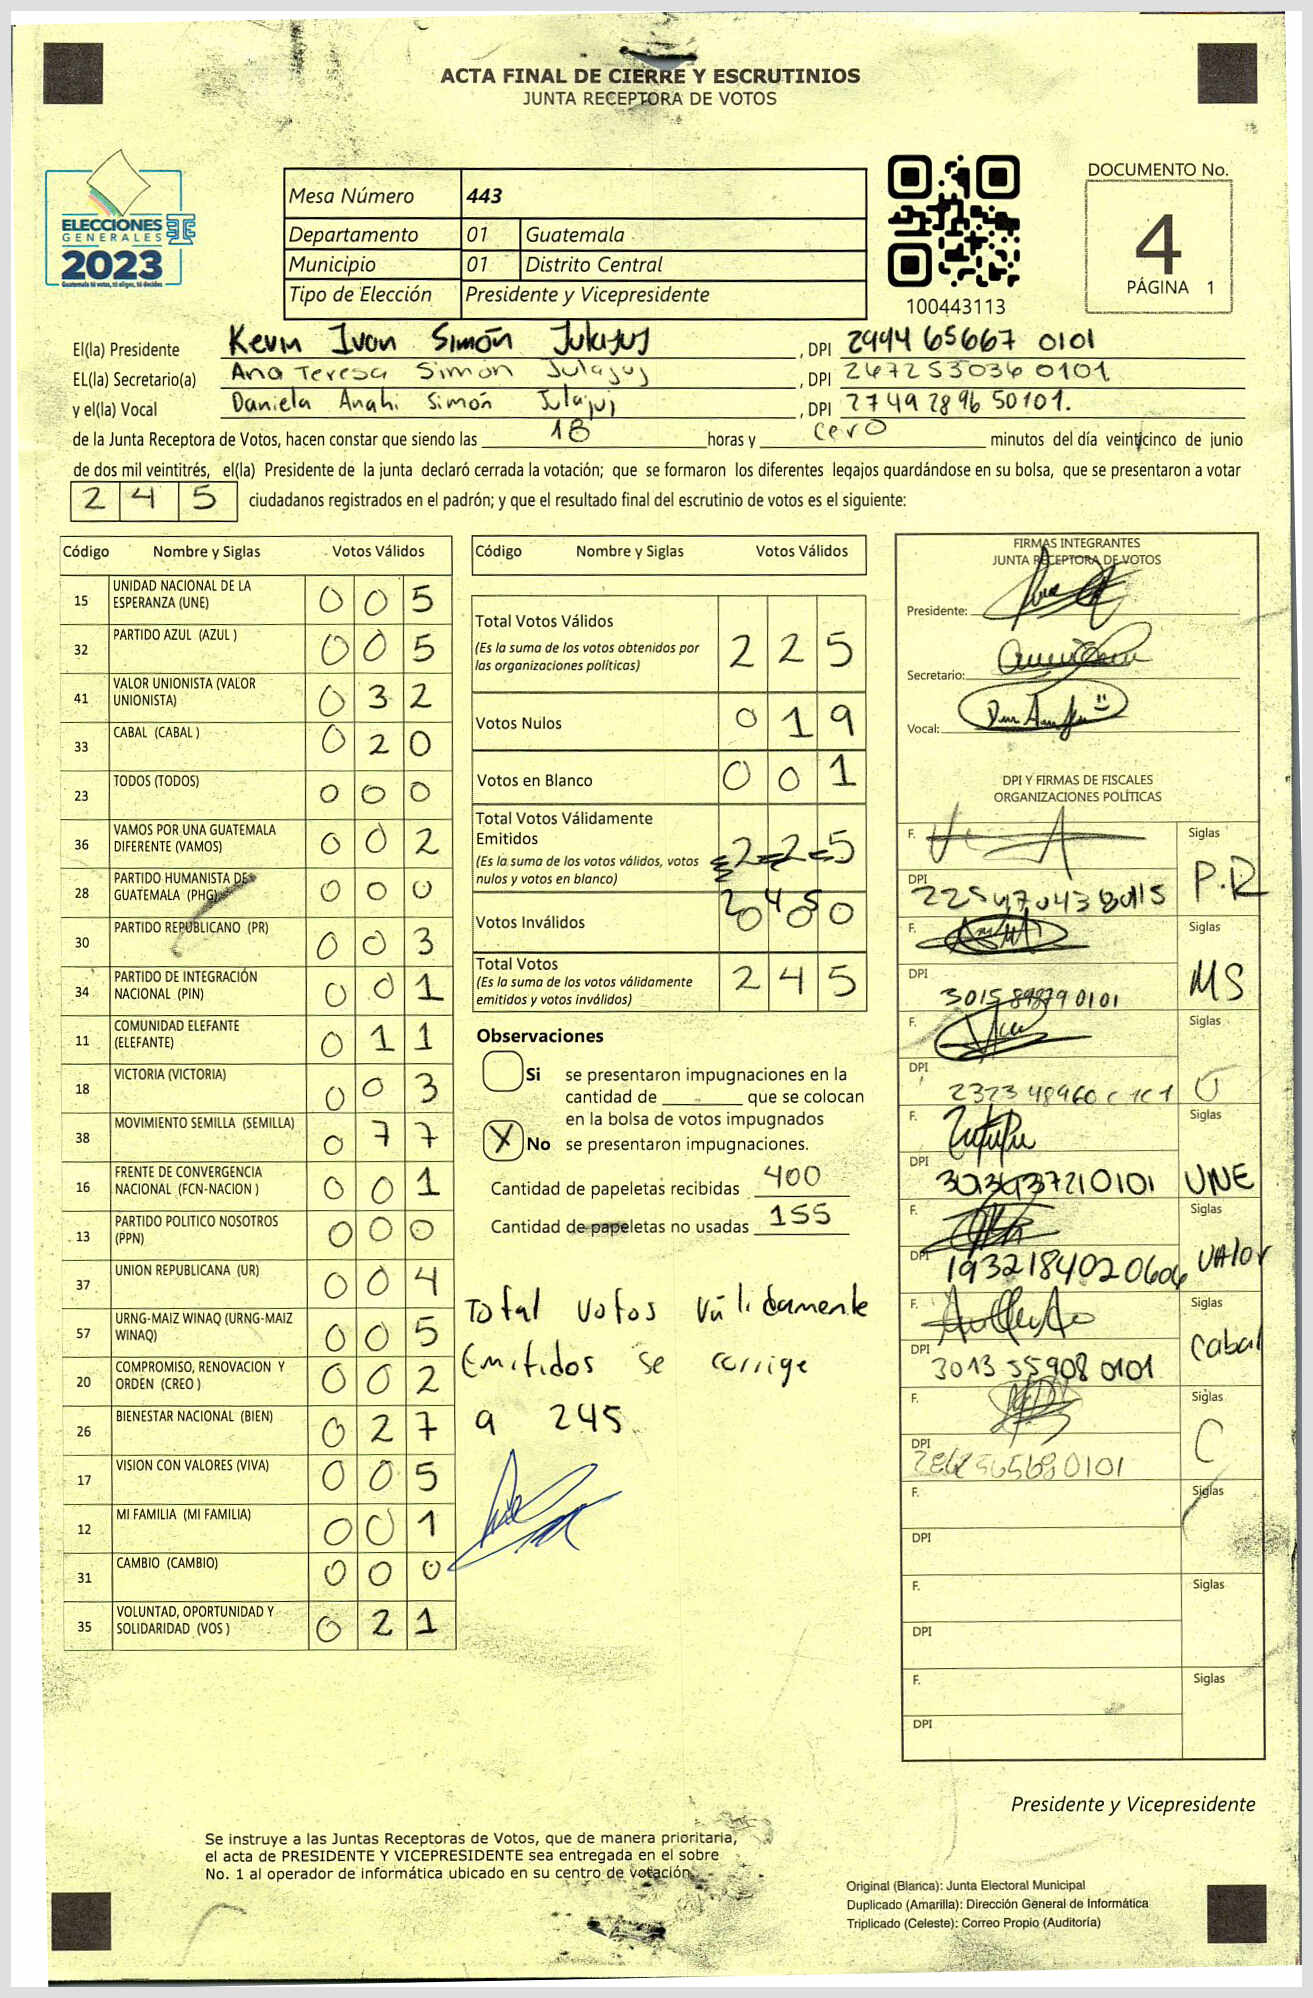 ACTA FINAL DE CIERRE Y ESCRUTINIOS
JUNTA RECEPTORA DE VOTOS
ELECCIONES
GENERALES
2023
Guatemala tú votas, tú eliges, tú decides
Mesa Número 443
Departamento 01 Guatemala
Municipio 01 Distrito Central
Tipo de Elección Presidente y Vicepresidente
100443113
DOCUMENTO No.
4
PÁGINA 1
El(la) Presidente Kevin Ivan Simón Julajuj , DPI 2994 65667 0101
EL(la) Secretario(a) Ana Teresa Simón Julajuj , DPI 267253036 0101
y el(la) Vocal Daniela Anahi Simón Julajuj , DPI 27492896 50101.
de la Junta Receptora de Votos, hacen constar que siendo las 18 horas y cero minutos del día veinticinco de junio
de dos mil veintitrés, el(la) Presidente de la junta declaró cerrada la votación; que se formaron los diferentes legajos quardándose en su bolsa, que se presentaron a votar
245 ciudadanos registrados en el padrón; y que el resultado final del escrutinio de votos es el siguiente:
Código Nombre y Siglas Votos Válidos
15 UNIDAD NACIONAL DE LA ESPERANZA (UNE) 005
32 PARTIDO AZUL (AZUL ) 005
41 VALOR UNIONISTA (VALOR UNIONISTA) 032
33 CABAL (CABAL ) 020
23 TODOS (TODOS) 000
36 VAMOS POR UNA GUATEMALA DIFERENTE (VAMOS) 002
28 PARTIDO HUMANISTA DE GUATEMALA (PHG) 000
30 PARTIDO REPUBLICANO (PR) 003
34 PARTIDO DE INTEGRACIÓN NACIONAL (PIN) 001
11 COMUNIDAD ELEFANTE (ELEFANTE) 011
18 VICTORIA (VICTORIA) 003
38 MOVIMIENTO SEMILLA (SEMILLA) 077
16 FRENTE DE CONVERGENCIA NACIONAL (FCN-NACION ) 001
13 PARTIDO POLITICO NOSOTROS (PPN) 000
37 UNION REPUBLICANA (UR) 004
57 URNG-MAIZ WINAQ (URNG-MAIZ WINAQ) 005
20 COMPROMISO, RENOVACION Y ORDEN (CREO ) 002
26 BIENESTAR NACIONAL (BIEN) 027
17 VISION CON VALORES (VIVA) 005
12 MI FAMILIA (MI FAMILIA) 001
31 CAMBIO (CAMBIO) 000
35 VOLUNTAD, OPORTUNIDAD Y SOLIDARIDAD (VOS ) 021
Código Nombre y Siglas Votos Válidos
Total Votos Válidos
(Es la suma de los votos obtenidos por las organizaciones políticas) 225
Votos Nulos 019
Votos en Blanco 001
Total Votos Válidamente Emitidos
(Es la suma de los votos válidos, votos nulos y votos en blanco) 225
245
Votos Inválidos 000
Total Votos
(Es la suma de los votos válidamente emitidos y votos inválidos) 245
Observaciones
Si se presentaron impugnaciones en la
cantidad de - que se colocan
en la bolsa de votos impugnados
X No se presentaron impugnaciones.
Cantidad de papeletas recibidas 400
Cantidad de papeletas no usadas 155
Total votos válidamente
Emitidos se corrige
a 245
FIRMAS INTEGRANTES
JUNTA RECEPTORA DE VOTOS
Presidente:
Secretario:
Vocal:
DPI Y FIRMAS DE FISCALES
ORGANIZACIONES POLÍTICAS
F. Siglas P.R
DPI
F. Siglas MS
DPI
F. Siglas
DPI
F. Siglas UNE
DPI 3034937210101
F. Siglas Valor
DPI 1932184020606
F. Siglas Cabal
DPI 3013 55908 0101
F. Siglas C
DPI
F. Siglas
DPI
F. Siglas
DPI
F. Siglas
DPI
Presidente y Vicepresidente
Se instruye a las Juntas Receptoras de Votos, que de manera prioritaria,
el acta de PRESIDENTE Y VICEPRESIDENTE sea entregada en el sobre
No. 1 al operador de informática ubicado en su centro de votación.
Original (Blanca): Junta Electoral Municipal
Duplicado (Amarilla): Dirección General de Informática
Triplicado (Celeste): Correo Propio (Auditoría)